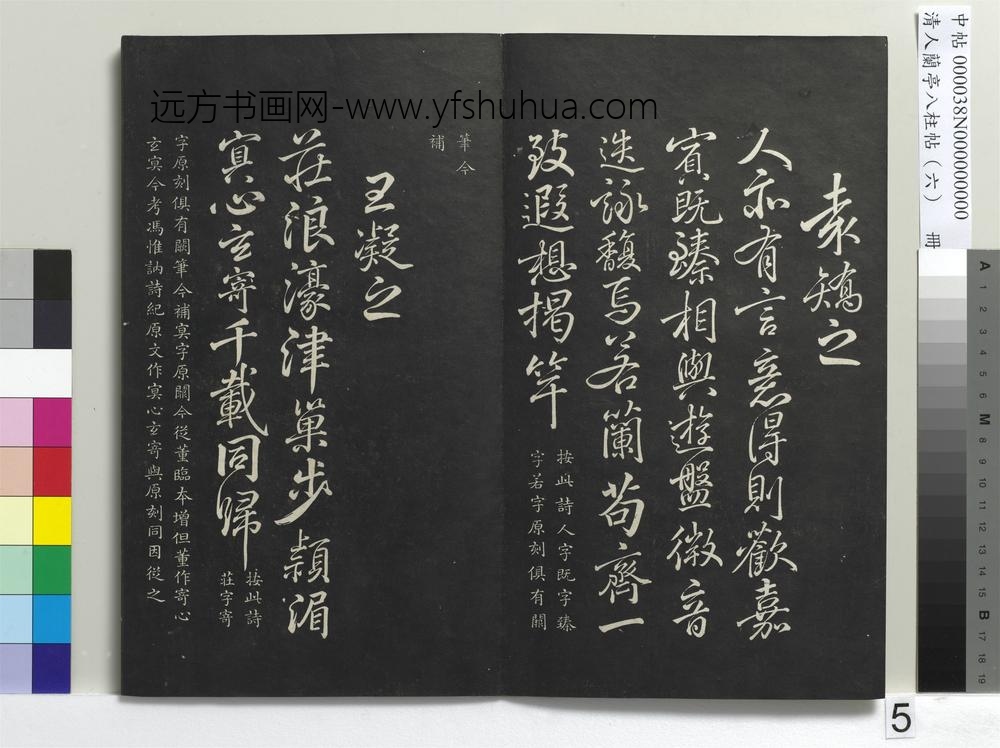 远方书画网-www.yfshuhua.com
中帖 000038N000000000
清人蘭亭八柱帖(六) 冊
袁矯之
人亦有言意得則歡嘉
賓既臻相與遊盤微音
迭詠馥焉若蘭苟齊一
致遐想揭竿
按此詩人字既字臻
字若字原刻俱有闕
筆今
補
王凝之
莊浪濠津巢步潁湄
冥心玄寄千載同歸
按此詩
莊字寄
字原刻俱有闕筆今補冥字原闕今從董臨本增但董作寄心
玄冥今考馮惟訥詩紀原文作冥心玄寄與原刻同因從之
5
A 1 2 3 4 5 6 M 8 9 10 11 12 13 14 15 B 17 18 19